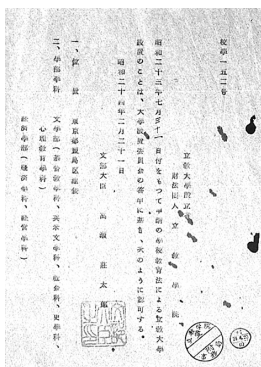 校学一五二号
立教大学設立者
財団法人 立教学院
昭和二十三年七月三十一日付をもつて申請の学校教育法による立教大学
設置のことは、大学設置委員会の答申に基き、次のように認可する。
昭和二十四年二月二十一日
文部大臣 高瀬荘太郎
一、位置 東京都豊島区池袋
二、学部学科 文学部(基督教学科、英米文学科、社会科、史学科、
心理教育学科)
経済学部(経済学科、経営学科)